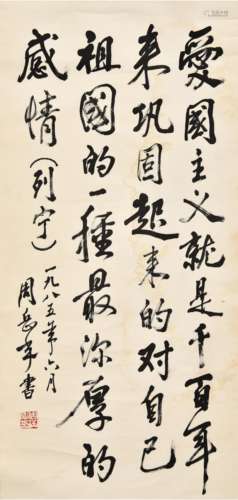 愛國主义就是千百年
来巩固起来的对自己
祖國的一種最深厚的
感情（列宁）
一九八五年六月
周岳年書